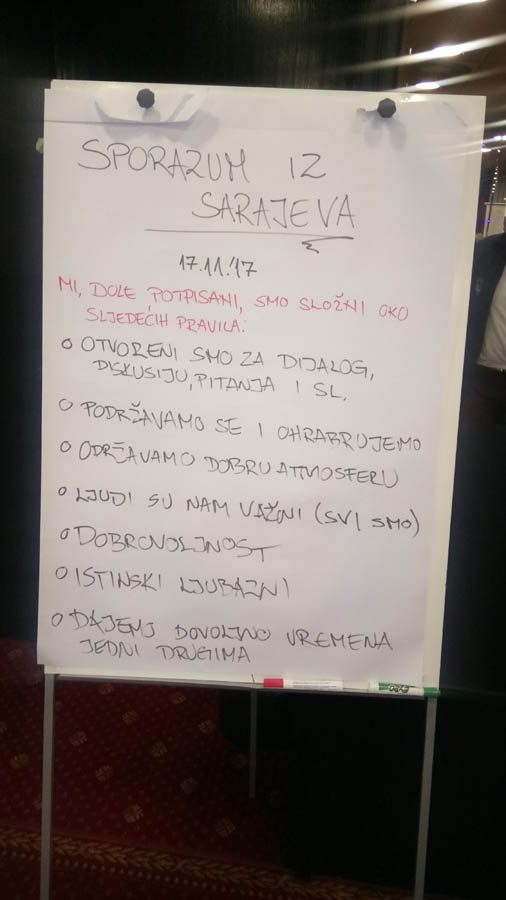 SPORAZUM IZ
SARAJEVA
17.11.'17
MI, DOLE POTPISANI, SMO SLOŽNI OKO
SLJEDEĆIH PRAVILA:
o OTVORENI SMO ZA DIJALOG,
DISKUSIJU, PITANJA I SL.
o PODRŽAVAMO SE I OHRABRUJEMO
o ODRŽAVAMO DOBRU ATMOSFERU
o LJUDI SU NAM VAŽNI (SVI SMO)
o DOBROVOLJNOST
o ISTINSKI LJUBAZNI
o DAJEMO DOVOLJNO VREMENA
JEDNI DRUGIMA